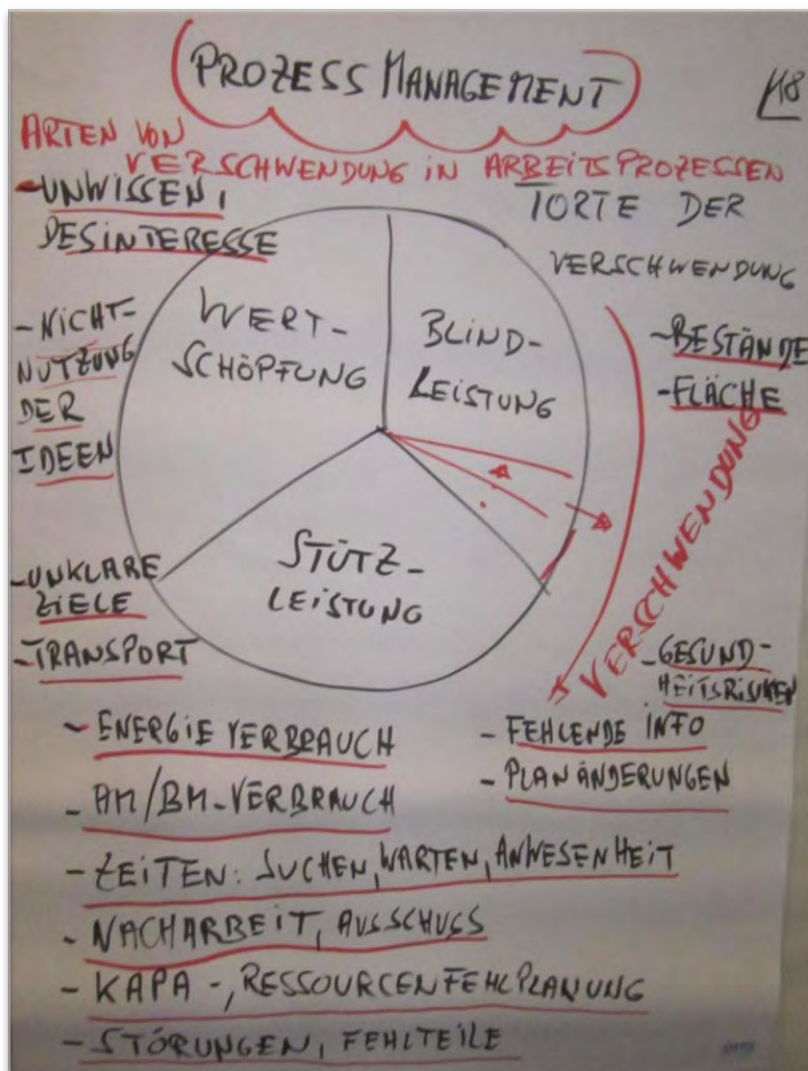 PROZESS MANAGEMENT
18
ARTEN VON
VERSCHWENDUNG IN ARBEITSPROZESSEN
TORTE DER
VERSCHWENDUNG
- UNWISSEN,
DESINTERESSE
- NICHT-
NUTZUNG
DER
IDEEN
- UNKLARE
ZIELE
- TRANSPORT
WERT-
SCHÖPFUNG
BLIND-
LEISTUNG
STÜTZ-
LEISTUNG
- BESTÄNDE
- FLÄCHE
VERSCHWENDUNG
- GESUND-
HEITSRISIKEN
- FEHLENDE INFO
- PLANÄNDERUNGEN
- ENERGIEVERBRAUCH
- HM/BM-VERBRAUCH
- ZEITEN: SUCHEN, WARTEN, ANWESENHEIT
- NACHARBEIT, AUSSCHUSS
- KAPA-, RESSOURCENFEHLPLANUNG
- STÖRUNGEN, FEHLTEILE